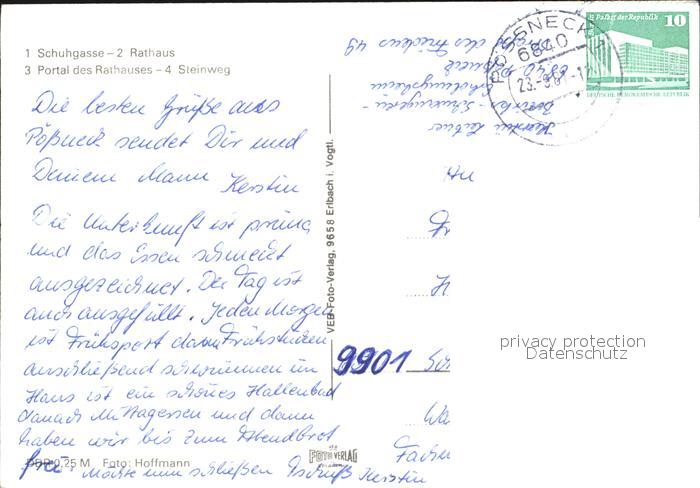 1 Schuhgasse – 2 Rathaus
3 Portal des Rathauses – 4 Steinweg
Die besten Grüße aus
Pößneck sendet Dir und
Deinem Mann Kerstin
Die Unterkunft ist prima
und das Essen schmeckt
ausgezeichnet. Der Tag ist
auch ausgefüllt. Jeden Morgen
ist Frühsport dann Frühstücken
anschließend schwimmen im
Haus ist ein schönes Hallenbad
danach Mittagessen und dann
haben wir bis zum Abendbrot
frei. Möchte nun schließen Tschüß Kerstin
DDR 0,25 M Foto: Hoffmann
VEB Foto-Verlag, 9658 Erlbach i. Vogtl.
FOTO VERLAG
Kerstin
6840 Pößneck
Str. des Friedens 49
PÖSSNECK 1
6840
Palast der Republik
10
DEUTSCHE DEMOKRATISCHE REPUBLIK
An
Fr
H
9901
privacy protection
Datenschutz